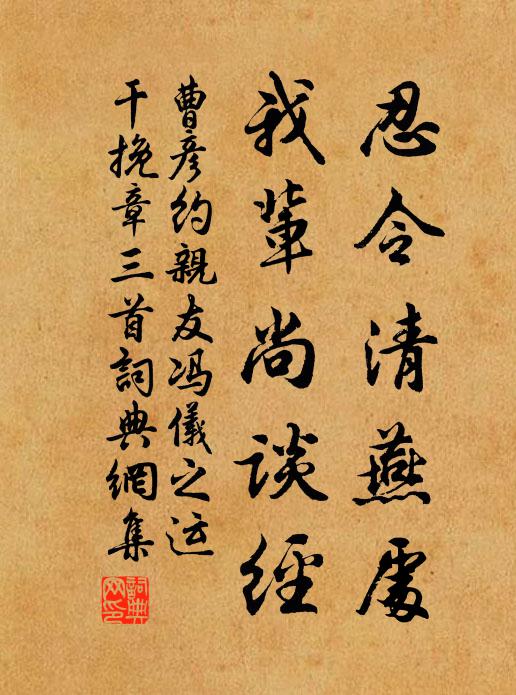 忍令清燕處
我輩尚談經
曹彥約親友冯儀之运
干挽章三首詞典網集
詞典网印